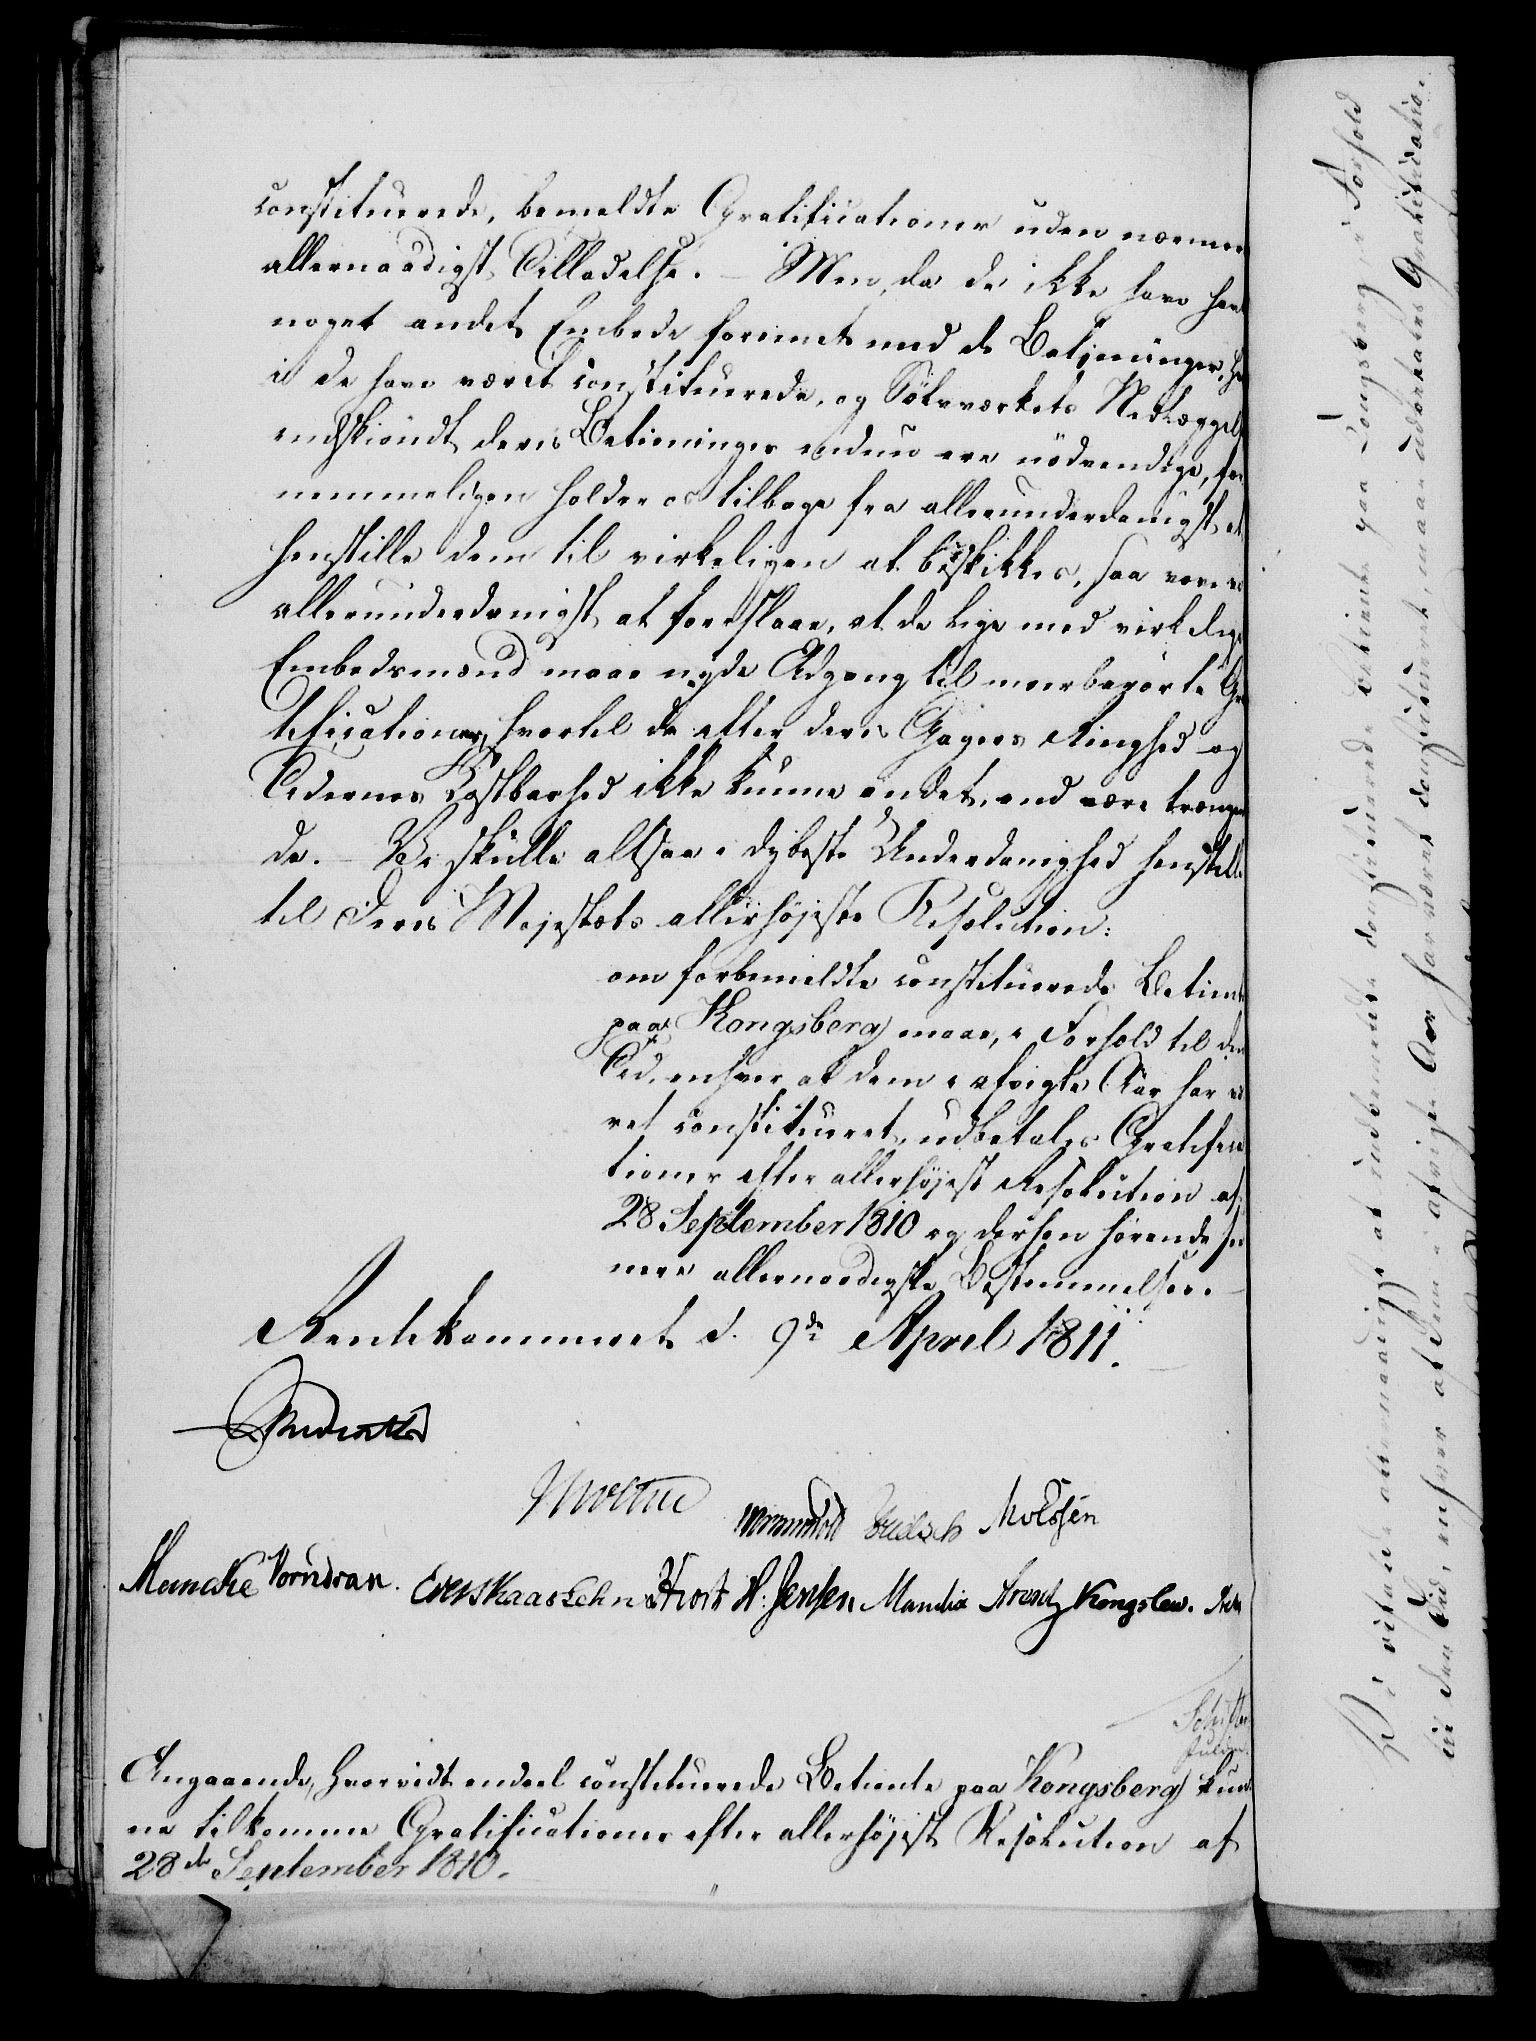 constituerede, bemeldte Gratificationer uden nærmere
allernaadigst Tilladelse. – Men, da de ikke have havt
noget andet Embede forenet med de Betjeninger, hvor
i de have været constituerede, og Sölvværkets Nedlæggelse
endskiöndt deres Betieninger endnu ere nödvendige, for
nemmeligen holder os tilbage fra allerunderdanigst at
henstille dem til virkeligen at beskikkes, saa vove vi
allerunderdanigst at foreslaae, at de lige med virkelige
Embedsmænd maae nyde Adgang til meerberörte Gra
tificationer, hvortil de efter deres Gagers Ringhed og
Tidernes Kostbarhed ikke kunne andet, end være trængen
de. – Vi skulle altsaa i dybeste Underdanighed henstille
til Deres Majestæts allerhöjeste Resolution:
om forbemeldte constituerede Betiente
paa Kongsberg maae, i Forhold til den
Tid, enhver af dem i afvigte Aar har væ
ret constitueret, udbetales Gratifica
tioner efter allerhöjest Resolution af
28 September 1810 og derhen hörende
nere allernaadigste Bestemmelser. –
Rentekammeret d. 9de April 1811.
Moltke
Wormskiold Molssen
Mancke Vorndran. Hiort H: Jensen Mandix Arentz Kongslew.
Angaaende, hvorvidt endeel constituerede Betiente paa Kongsberg kun
ne tilkomme Gratificationer efter allerhöjest Resolution af
28de September 1810.
Vi ville allernaadigst at indbemeldte constituerede Betiente paa Kongsberg i Forhold
til den Tid, enhver af dem i afvigte Aar har været constitueret, maae udbetales Gratificatio-